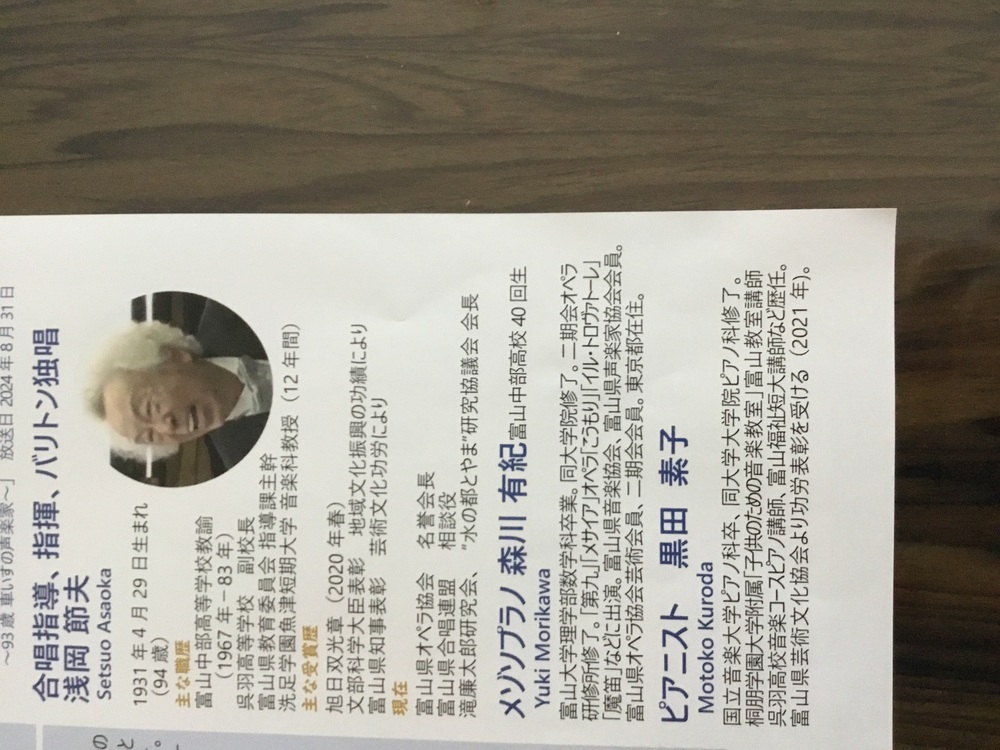 ～93歳 車いすの声楽家～」 放送日 2024年8月31日
合唱指導、指揮、バリトン独唱
浅岡 節夫
Setsuo Asaoka
1931年4月29日生まれ
（94歳）
主な職歴
富山中部高等学校教諭
（1967年－83年）
呉羽高等学校 副校長
富山県教育委員会 指導課主幹
洗足学園魚津短期大学 音楽科教授（12年間）
主な受賞歴
旭日双光章（2020年春）
文部科学大臣表彰 地域文化振興の功績により
富山県知事表彰 芸術文化功労により
現在
富山県オペラ協会 名誉会長
富山県合唱連盟 相談役
滝廉太郎研究会、“水の都とやま”研究協議会 会長
メゾソプラノ 森川 有紀 富山中部高校40回生
Yuki Morikawa
富山大学理学部数学科卒業。同大学院修了。二期会オペラ
研修所修了。「第九」「メサイア」オペラ「こうもり」「イル・トロヴァトーレ」
「魔笛」などに出演。富山県音楽協会、富山県声楽家協会会員。
富山県オペラ協会会芸術会員、二期会会員。東京都在住。
ピアニスト 黒田 素子
Motoko Kuroda
国立音楽大学ピアノ科卒、同大学大学院ピアノ科修了。
桐朋学園大学附属「子供のための音楽教室」富山教室講師
呉羽高校音楽コースピアノ講師、富山福祉短大講師など歴任。
富山県芸術文化協会より功労表彰を受ける（2021年）。
の
と
。